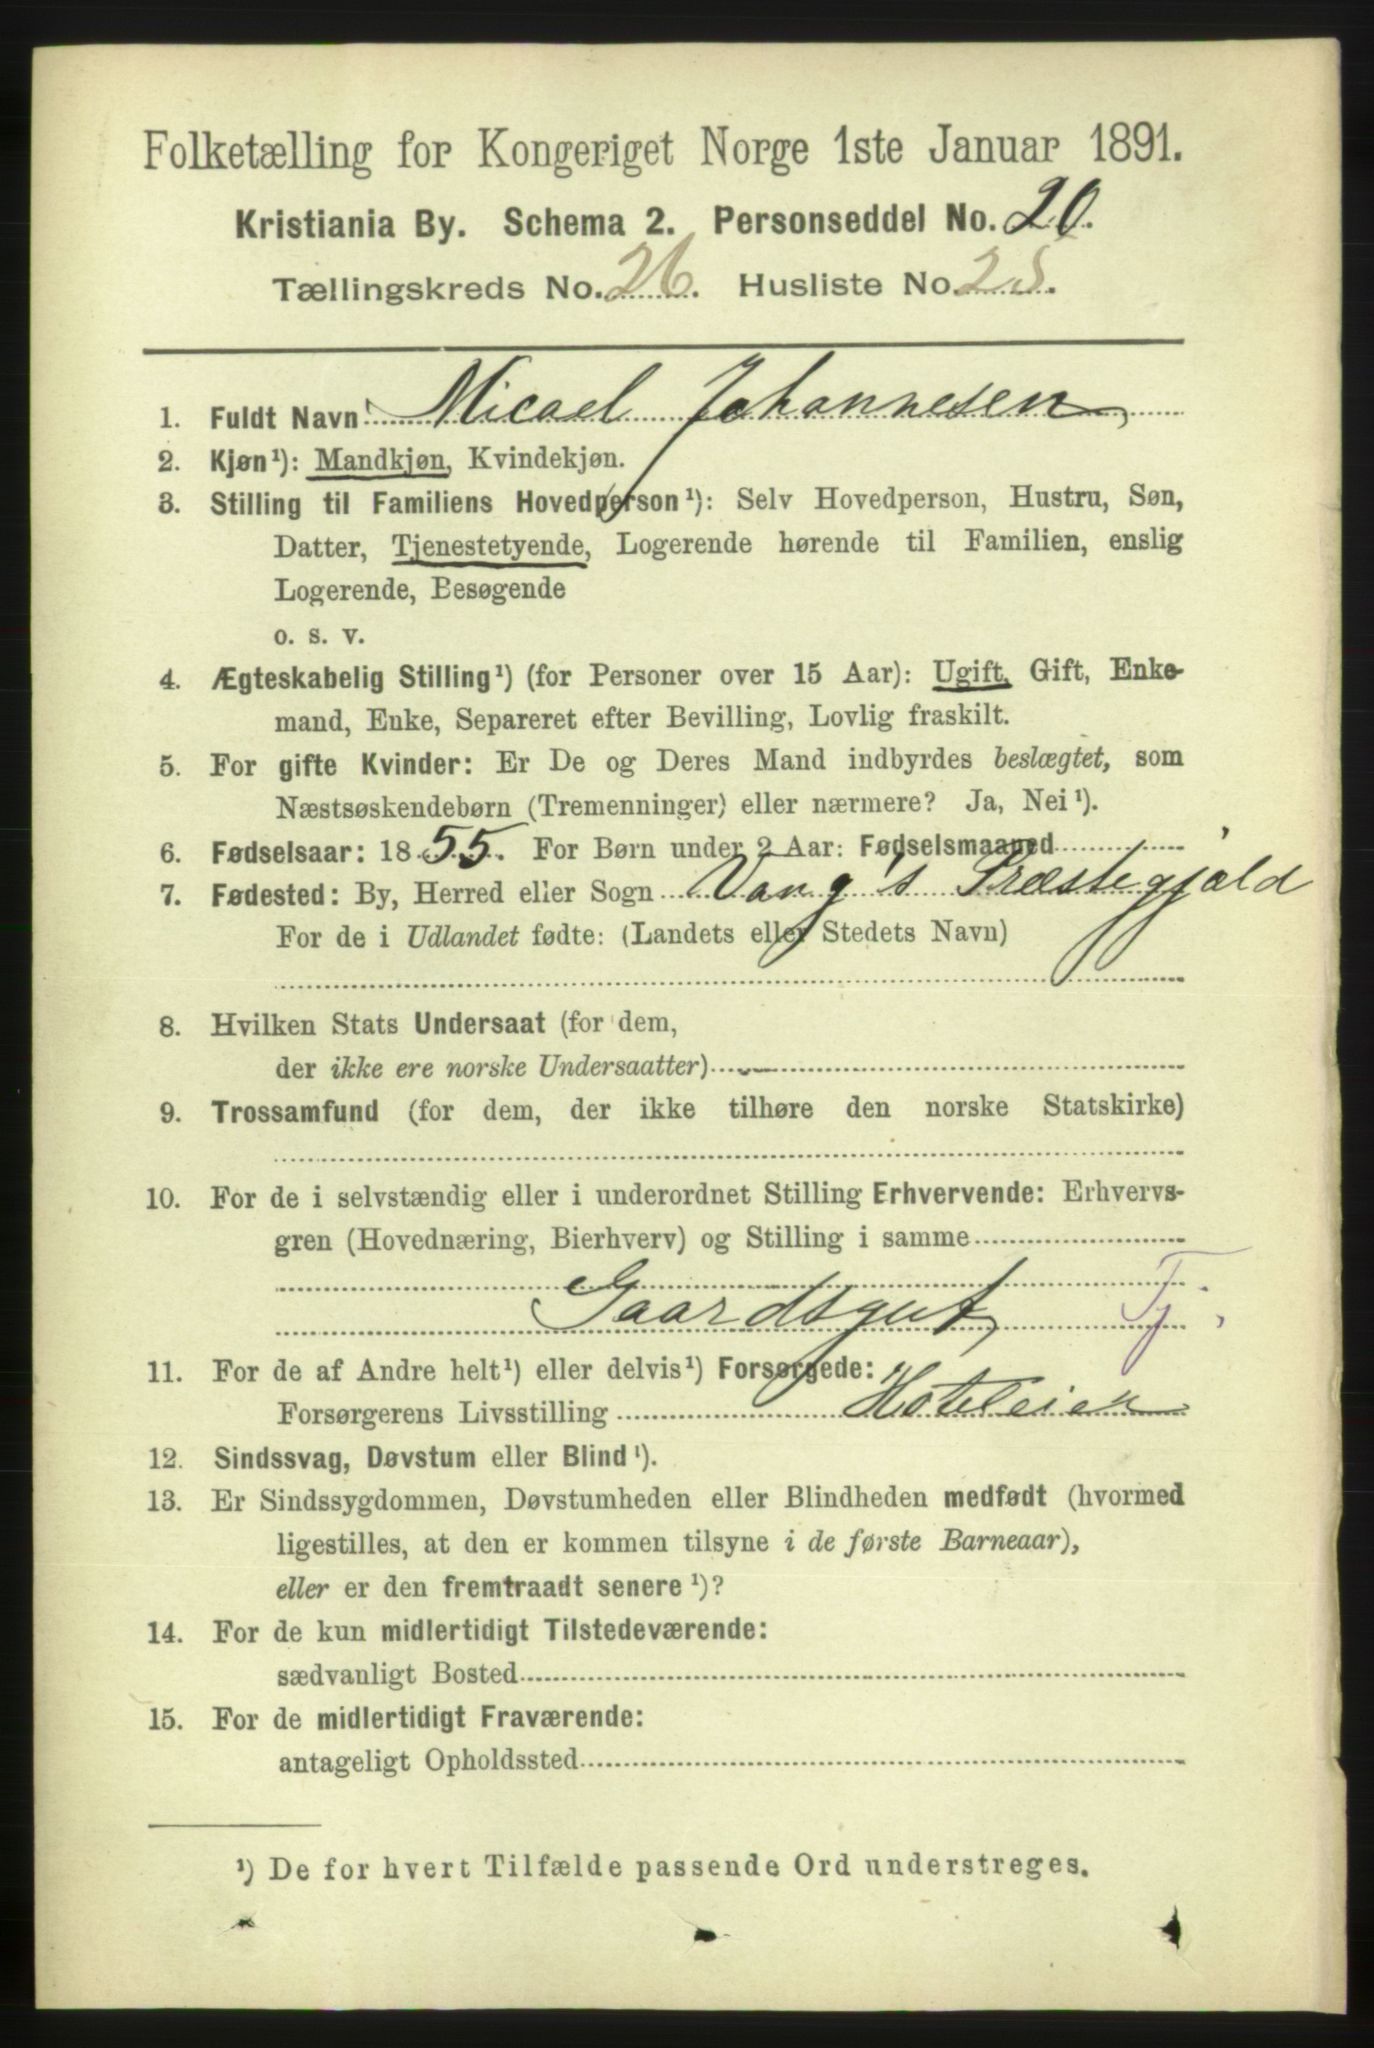 Folketælling for Kongeriget Norge 1ste Januar 1891.
Kristiania By. Schema 2. Personseddel No. 20.
Tællingskreds No. 26. Husliste No. 25.
1. Fuldt Navn Micael Johannesen,
2. Kjøn¹): Mandkjøn, Kvindekjøn.
3. Stilling til Familiens Hovedperson¹): Selv Hovedperson, Hustru, Søn,
Datter, Tjenestetyende, Logerende hørende til Familien, enslig
Logerende, Besøgende
o. s. v.
4. Ægteskabelig Stilling¹) (for Personer over 15 Aar): Ugift, Gift, Enke-
mand, Enke, Separeret efter Bevilling, Lovlig fraskilt.
5. For gifte Kvinder: Er De og Deres Mand indbyrdes beslægtet, som
Næstsøskendebørn (Tremenninger) eller nærmere? Ja, Nei¹).
6. Fødselsaar: 1855. For Børn under 2 Aar: Fødselsmaaned
7. Fødested: By, Herred eller Sogn Vang's Præstegjæld
For de i Udlandet fødte: (Landets eller Stedets Navn)
8. Hvilken Stats Undersaat (for dem,
der ikke ere norske Undersaatter)
9. Trossamfund (for dem, der ikke tilhøre den norske Statskirke)
10. For de i selvstændig eller i underordnet Stilling Erhvervende: Erhvervs-
gren (Hovednæring, Bierhverv) og Stilling i samme
Gaardsgut, Tj.
11. For de af Andre helt¹) eller delvis¹) Forsørgede:
Forsørgerens Livsstilling Hoteleier
12. Sindssvag, Døvstum eller Blind¹).
13. Er Sindssygdommen, Døvstumheden eller Blindheden medfødt (hvormed
ligestilles, at den er kommen tilsyne i de første Barneaar),
eller er den fremtraadt senere¹)?
14. For de kun midlertidigt Tilstedeværende:
sædvanligt Bosted
15. For de midlertidigt Fraværende:
antageligt Opholdssted
¹) De for hvert Tilfælde passende Ord understreges.